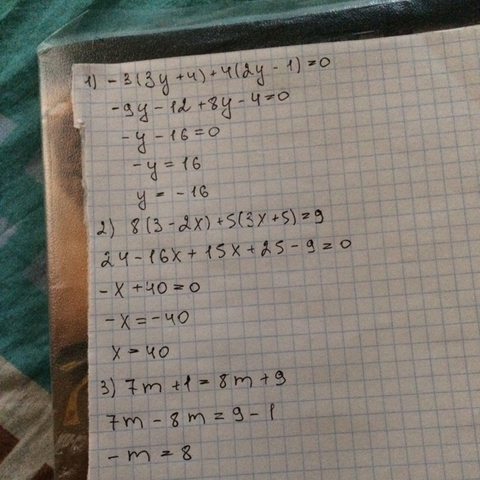 1) -3(3y+4)+4(2y-1)=0
-9y-12+8y-4=0
-y-16=0
-y=16
y=-16
2) 8(3-2x)+5(3x+5)=9
24-16x+15x+25-9=0
-x+40=0
-x=-40
x=40
3) 7m+1=8m+9
7m-8m=9-1
-m=8